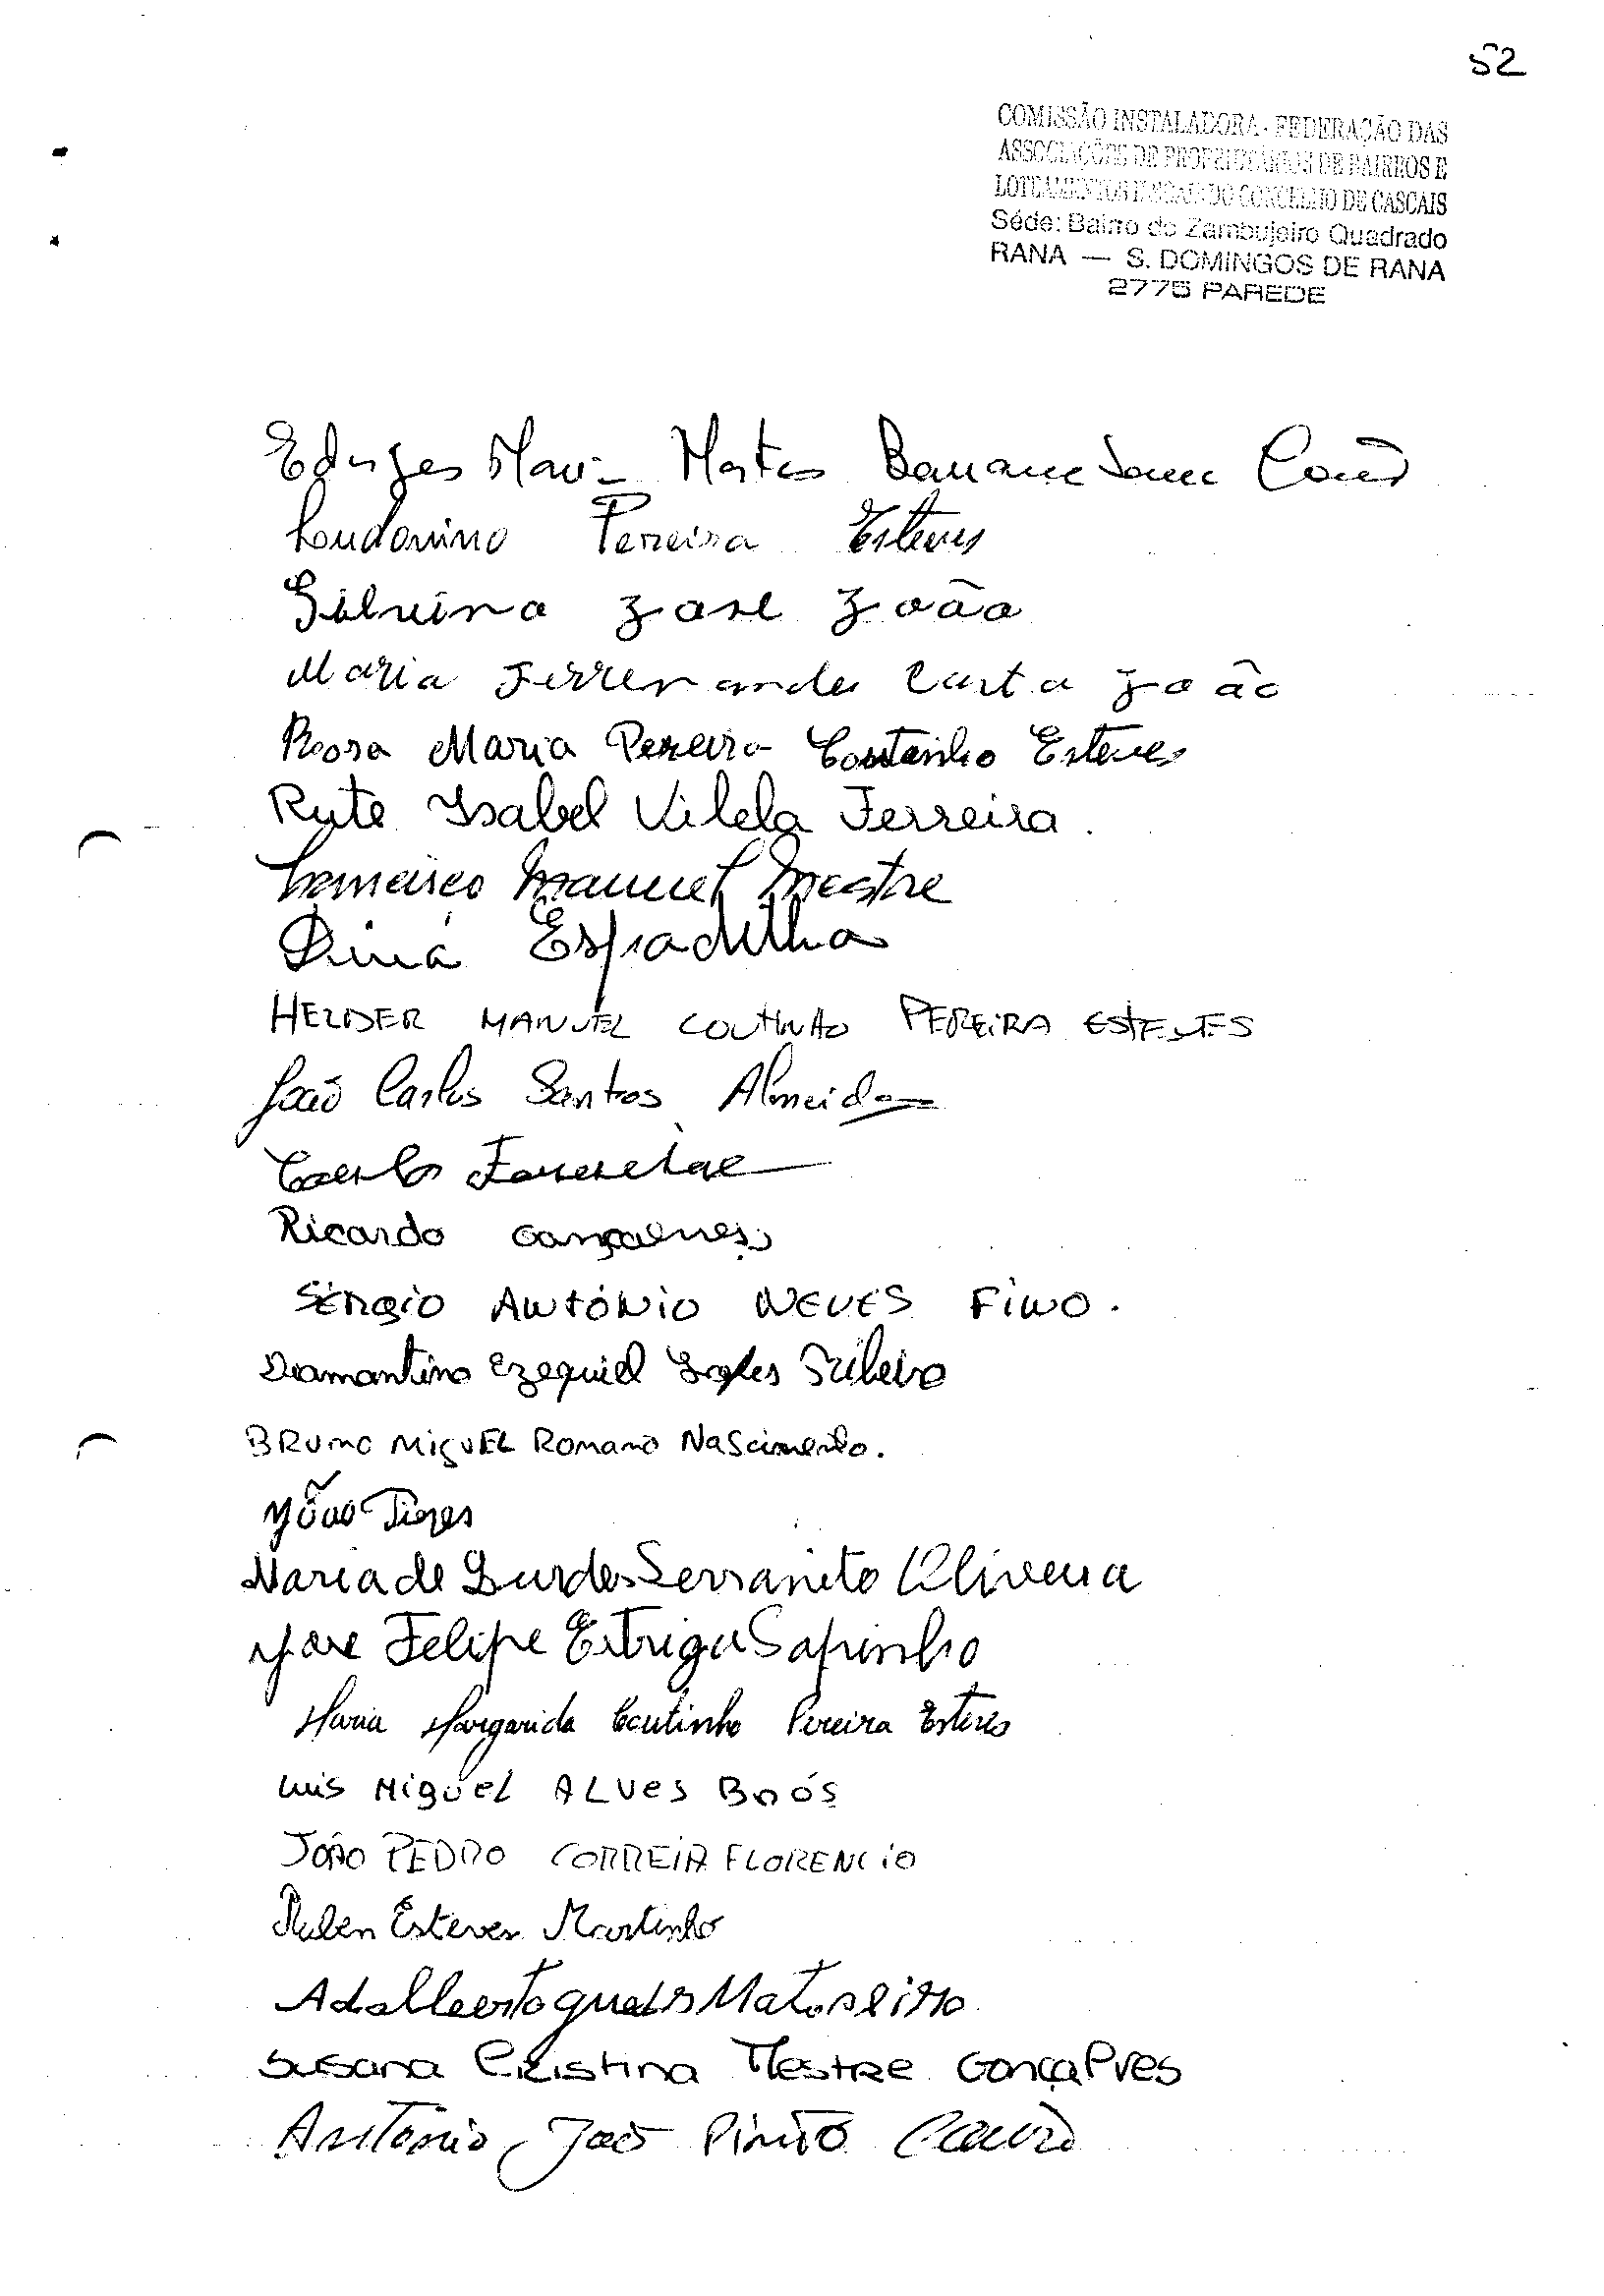 52
COMISSÃO INSTALADORA - FEDERAÇÃO DAS
ASSOCIAÇÕES DE PROPRIETÁRIOS DE BAIRROS E
LOTEAMENTOS ILEGAIS DO CONCELHO DE CASCAIS
Séde: Bairro do Zambujeiro Quadrado
RANA — S. DOMINGOS DE RANA
2775 PAREDE
Maria Matos
Pereira Esteves
Silvina José João
Maria Costa João
Rosa Maria Pereira Coutinho Esteves
Rute Isabel Vilela Ferreira.
Francisco Manuel Mestre
Diná Espadilha
HELDER MANUEL COUTINHO PEREIRA ESTEVES
João Carlos Santos Almeida
Carlos
Ricardo Gonçalves
SÉRGIO ANTÓNIO NEVES FINO.
Diamantino Ezequiel Lopes Ribeiro
BRUNO MIGUEL ROMANO NASCIMENTO.
João
Maria de Lurdes Serranito Oliveira
José Felipe Estriga Sapinho
Maria Margarida Coutinho Pereira Esteves
Luis MIGUEL ALVES BRÓS
JOÃO PEDRO CORREIA FLORENCIO
Ruben Esteves Martinho
Adalberto Guedes
Susana Cristina Mestre Gonçalves
António João Pinto